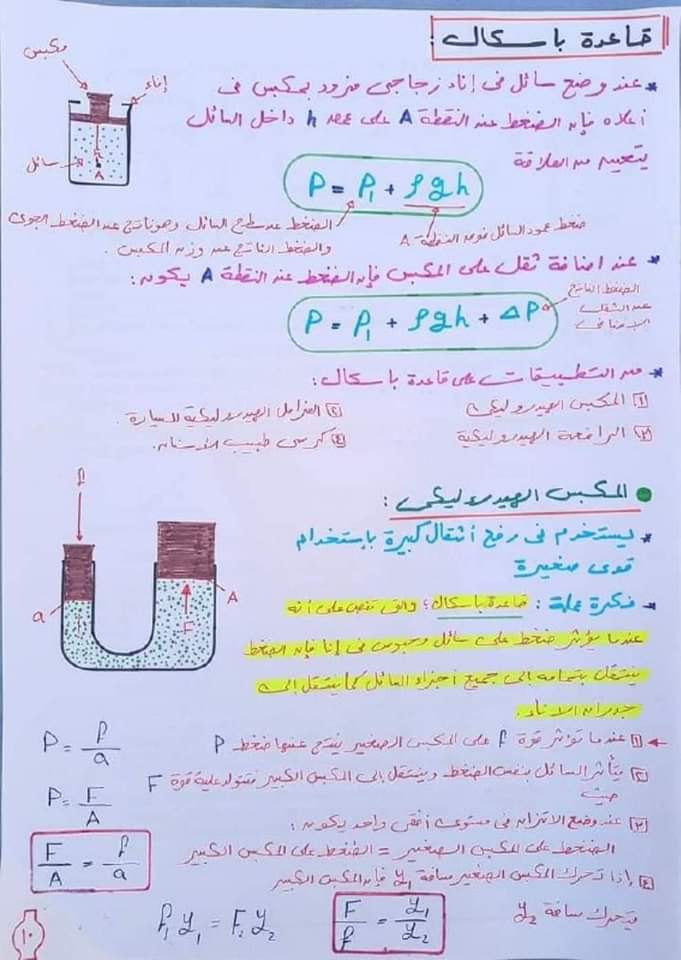 قاعدة باسكال :
مكبس
إناء
سائل
A
* عند وضع سائل فى إناء زجاجى مزود بمكبس فى
أعلاه فإن الضغط عند النقطة A على عمق h داخل السائل
يتعين من العلاقة
P = P₁ + ρgh
ضغط عمود السائل فوق النقطة A
الضغط عند سطح السائل وهو ناتج عن الضغط الجوى
والضغط الناتج عن وزن المكبس .
* عند اضافة ثقل على المكبس فإن الضغط عند النقطة A يكون :
P = P₁ + ρgh + ΔP
الضغط الناتج
عن الثقل
الإضافى
* من التطبيقات على قاعدة باسكال :
١ المكبس الهيدروليكى
٢ الفرامل الهيدروليكية للسيارة .
٣ الرافعة الهيدروليكية
٤ كرسى طبيب الأسنان .
المكبس الهيدروليكى :
* يستخدم فى رفع أثقال كبيرة بإستخدام
قوى صغيرة
f
a
A
F
* فكرة عمله : قاعدة باسكال ؛ والتى تنص على أنه
عندما يؤثر ضغط على سائل محبوس فى إناء فإن الضغط
ينتقل بتمامه إلى جميع أجزاء السائل كما ينتقل إلى
جدران الاناء .
١ عندما تؤثر قوة f على المكبس الصغير ينتج عنها ضغط P
P = f/a
٢ يتأثر السائل بنفس الضغط وينتقل إلى المكبس الكبير فتتولد عليه قوة F
حيث
P = F/A
٣ عند وضع الاتزان فى مستوى أفقى واحد يكون :
الضغط على المكبس الصغير = الضغط على المكبس الكبير
F/A = f/a
٤ إذا تحرك المكبس الصغير مسافة y₁ فإن المكبس الكبير
يتحرك مسافة y₂
F/f = y₁/y₂
f₁ y₁ = F₂ y₂
١٠